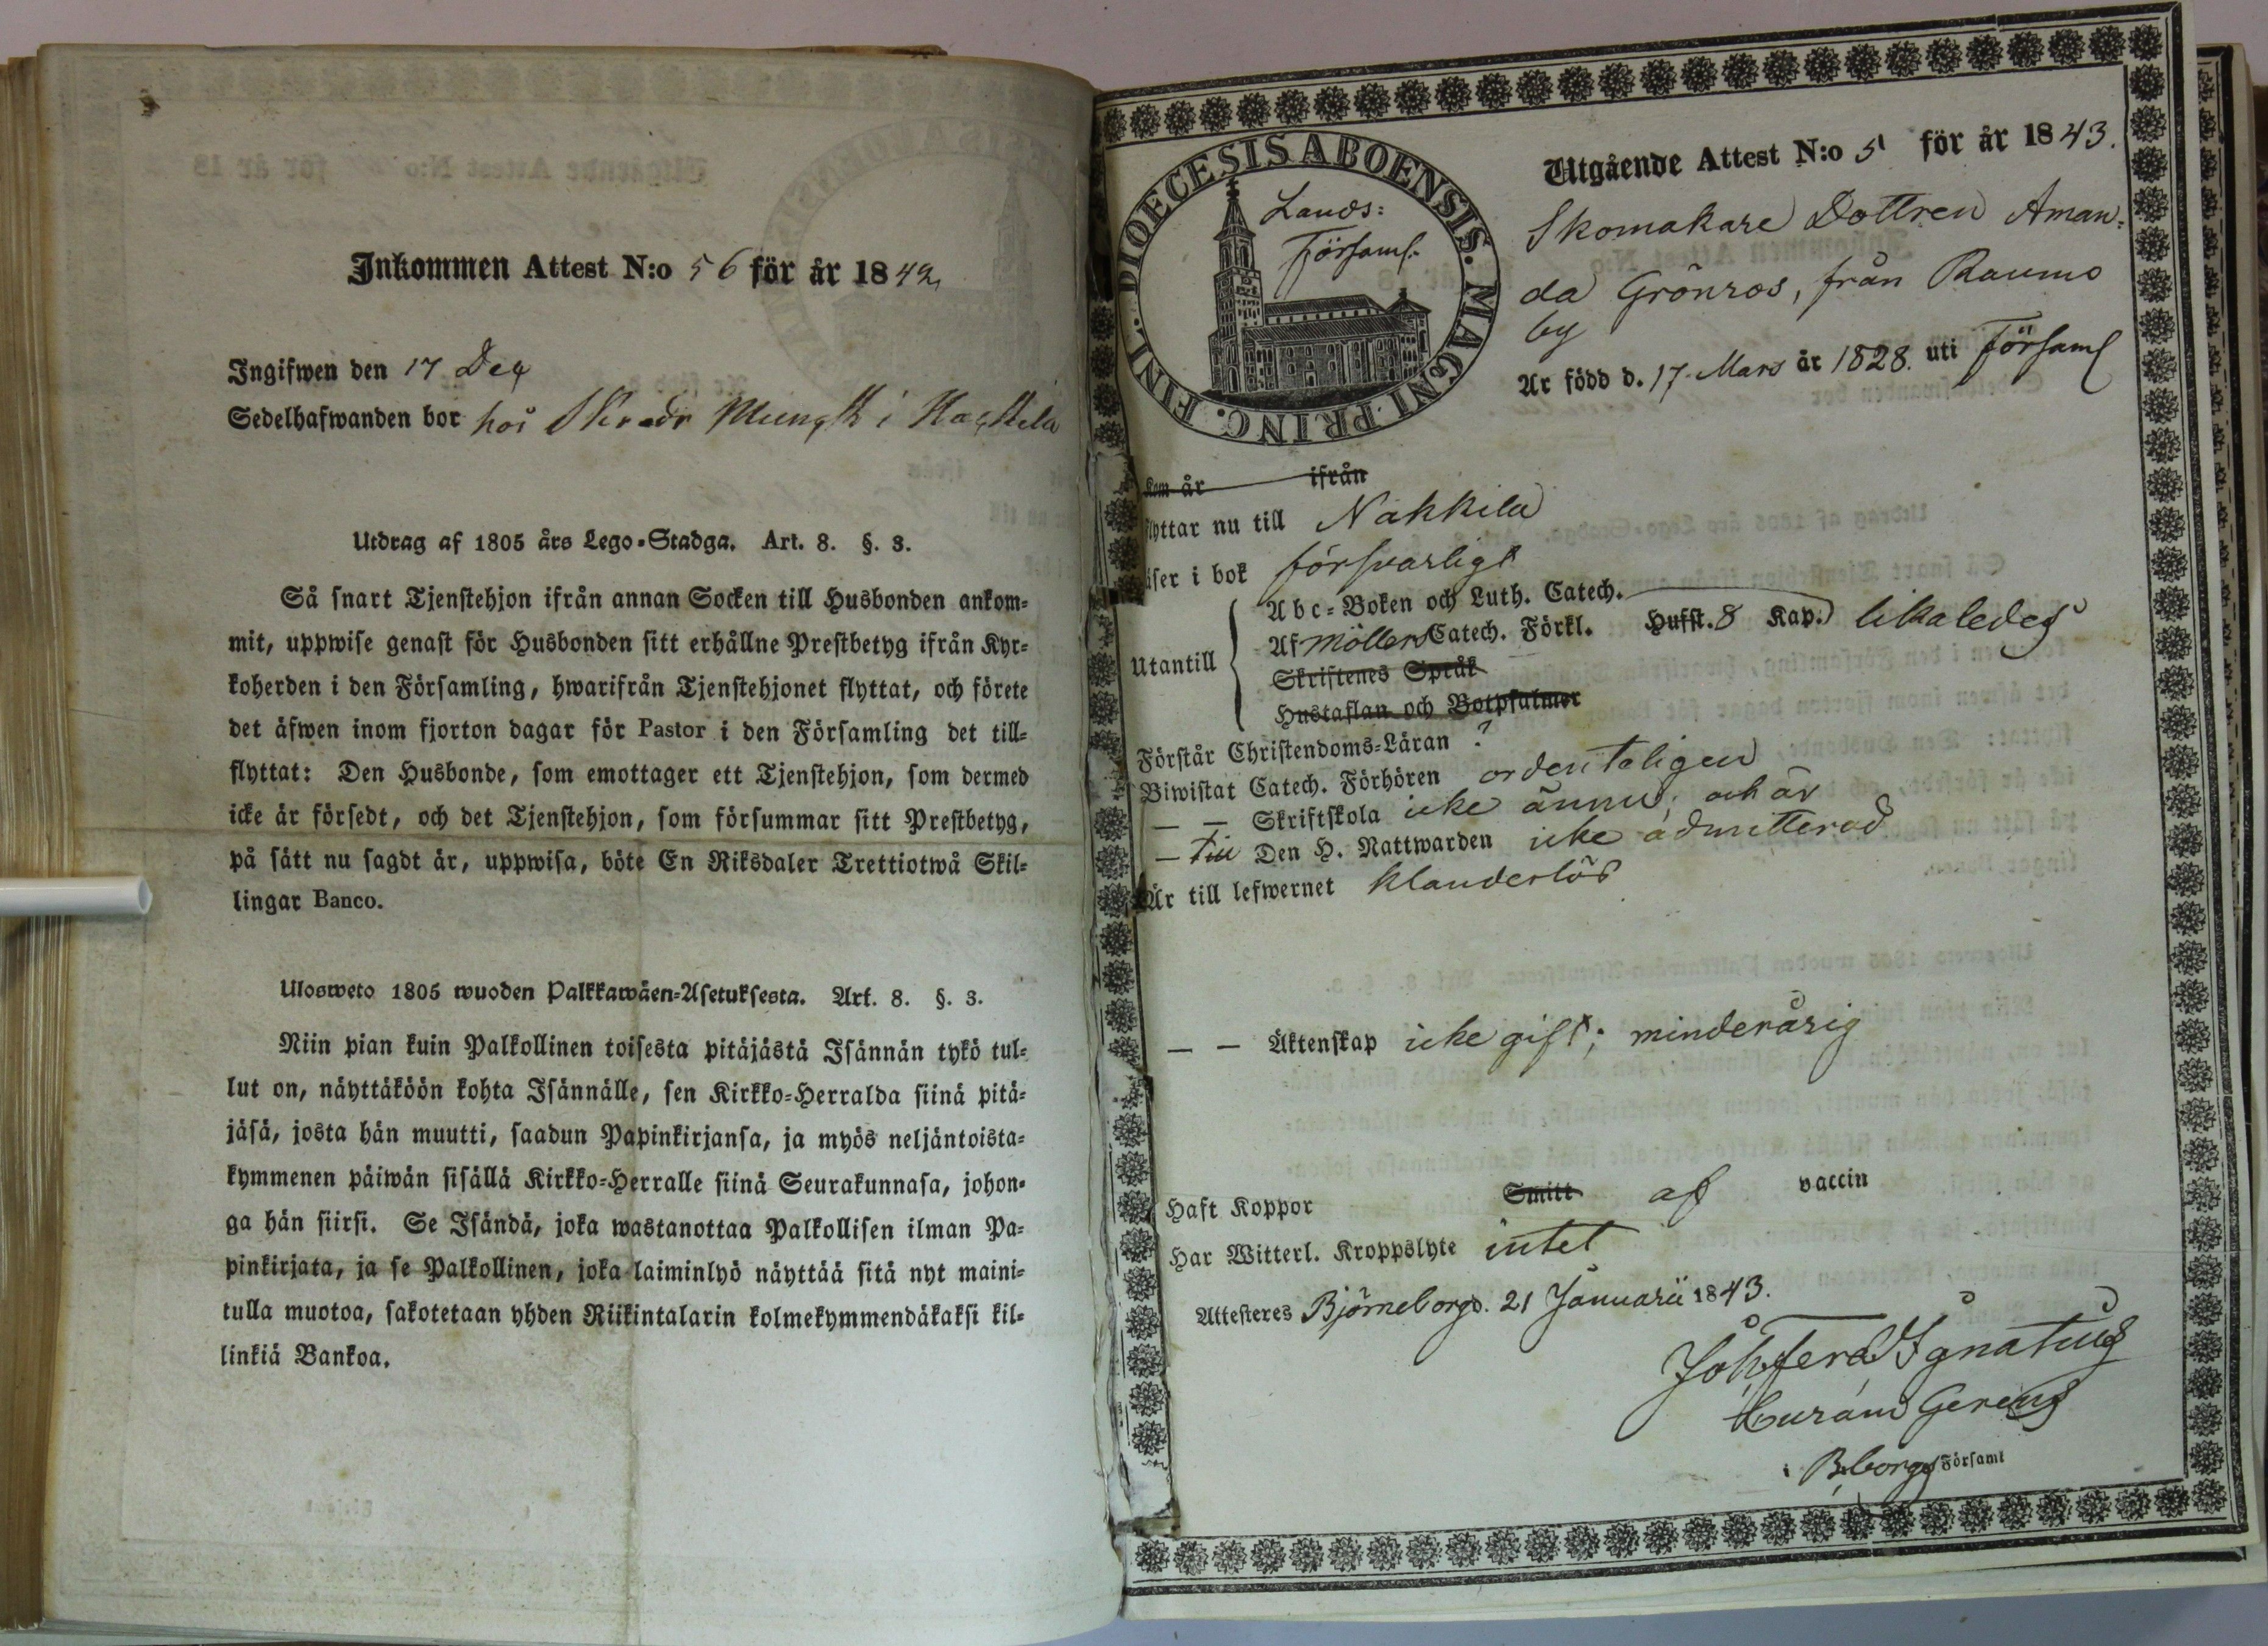 Inkommen Attest N:o 56 för år 1842
Ingifwen den 17 Dec
Sedelhafwanden bor hos Skrädr Mungk i
Utdrag af 1805 års Lego-Stadga. Art. 8. §. 3.
Så snart Tjenstehjon ifrån annan Socken till Husbonden ankom-
mit, uppwise genast för Husbonden sitt erhållne Prestbetyg ifrån Kyr-
koherden i den Församling, hwarifrån Tjenstehjonet flyttat, och förete
det äfwen inom fjorton dagar för Pastor i den Församling det till-
flyttat: Den Husbonde, som emottager ett Tjenstehjon, som dermed
icke är försedt, och det Tjenstehjon, som försummar sitt Prestbetyg,
på sätt nu sagdt är, uppwisa, böte En Riksdaler Trettiotwå Skil-
lingar Banco.
Ulosweto 1805 wuoden Palkkawäen-Asetuksesta. Art. 8. §. 3.
Niin pian kuin Palkollinen toisesta pitäjästä Isännän tykö tul-
lut on, näyttäköön kohta Isännälle, sen Kirkko-Herralda siinä pitä-
jäsä, josta hän muutti, saadun Papinkirjansa, ja myös neljäntoista-
kymmenen päiwän sisällä Kirkko-Herralle siinä Seurakunnasa, johon-
ga hän siirsi. Se Isändä, joka wastanottaa Palkollisen ilman Pa-
pinkirjata, ja se Palkollinen, joka laiminlyö näyttää sitä nyt maini-
tulla muotoa, sakotetaan yhden Riikintalarin kolmekymmendäkaksi kil-
linkiä Bankoa.
DIOECESIS ABOENSIS. MAGNI PRINC. FINL.
Lands:
Församl.
Utgående Attest N:o 5 för år 1843.
Skomakare Dottren Aman-
da Grönros, från Raumo
by
Är född d. 17 Mars år 1828. uti Församl
Kom år ifrån
flyttar nu till Nakkila
läser i bok försvarligt
Utantill
Abc-Boken och Luth. Catech.
Af Möllers Catech. Förkl. Hufst. 8 Kap. likaledes
Skriftenes Språk
Hustaflan och Botpsalmer
Förstår Christendoms-Läran ?
Biwistat Catech. Förhören ordenteligen
— — Skriftskola icke ännu, och är
— till Den H. Nattwarden icke admitterad
Är till lefwernet klanderlös
— — Äktenskap icke gift; minderårig
Haft Koppor Smitt af vaccin
Har Witterl. Kroppslyte intet
Attesteres Björneborgs. 21 Januarii 1843.
Joh. Ferd. Ignatius
Curam Gerens
i B:borgs Församl